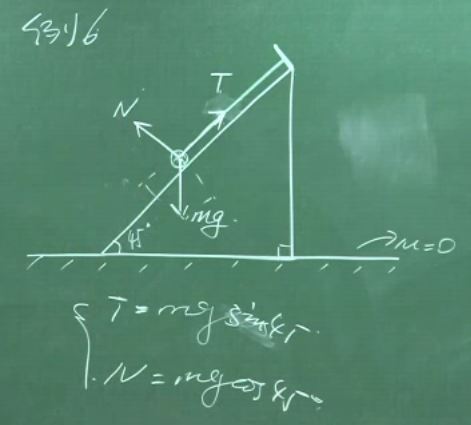 例6
T
N
mg
45°
μ=0
T=mg sin45°
N=mg cos45°